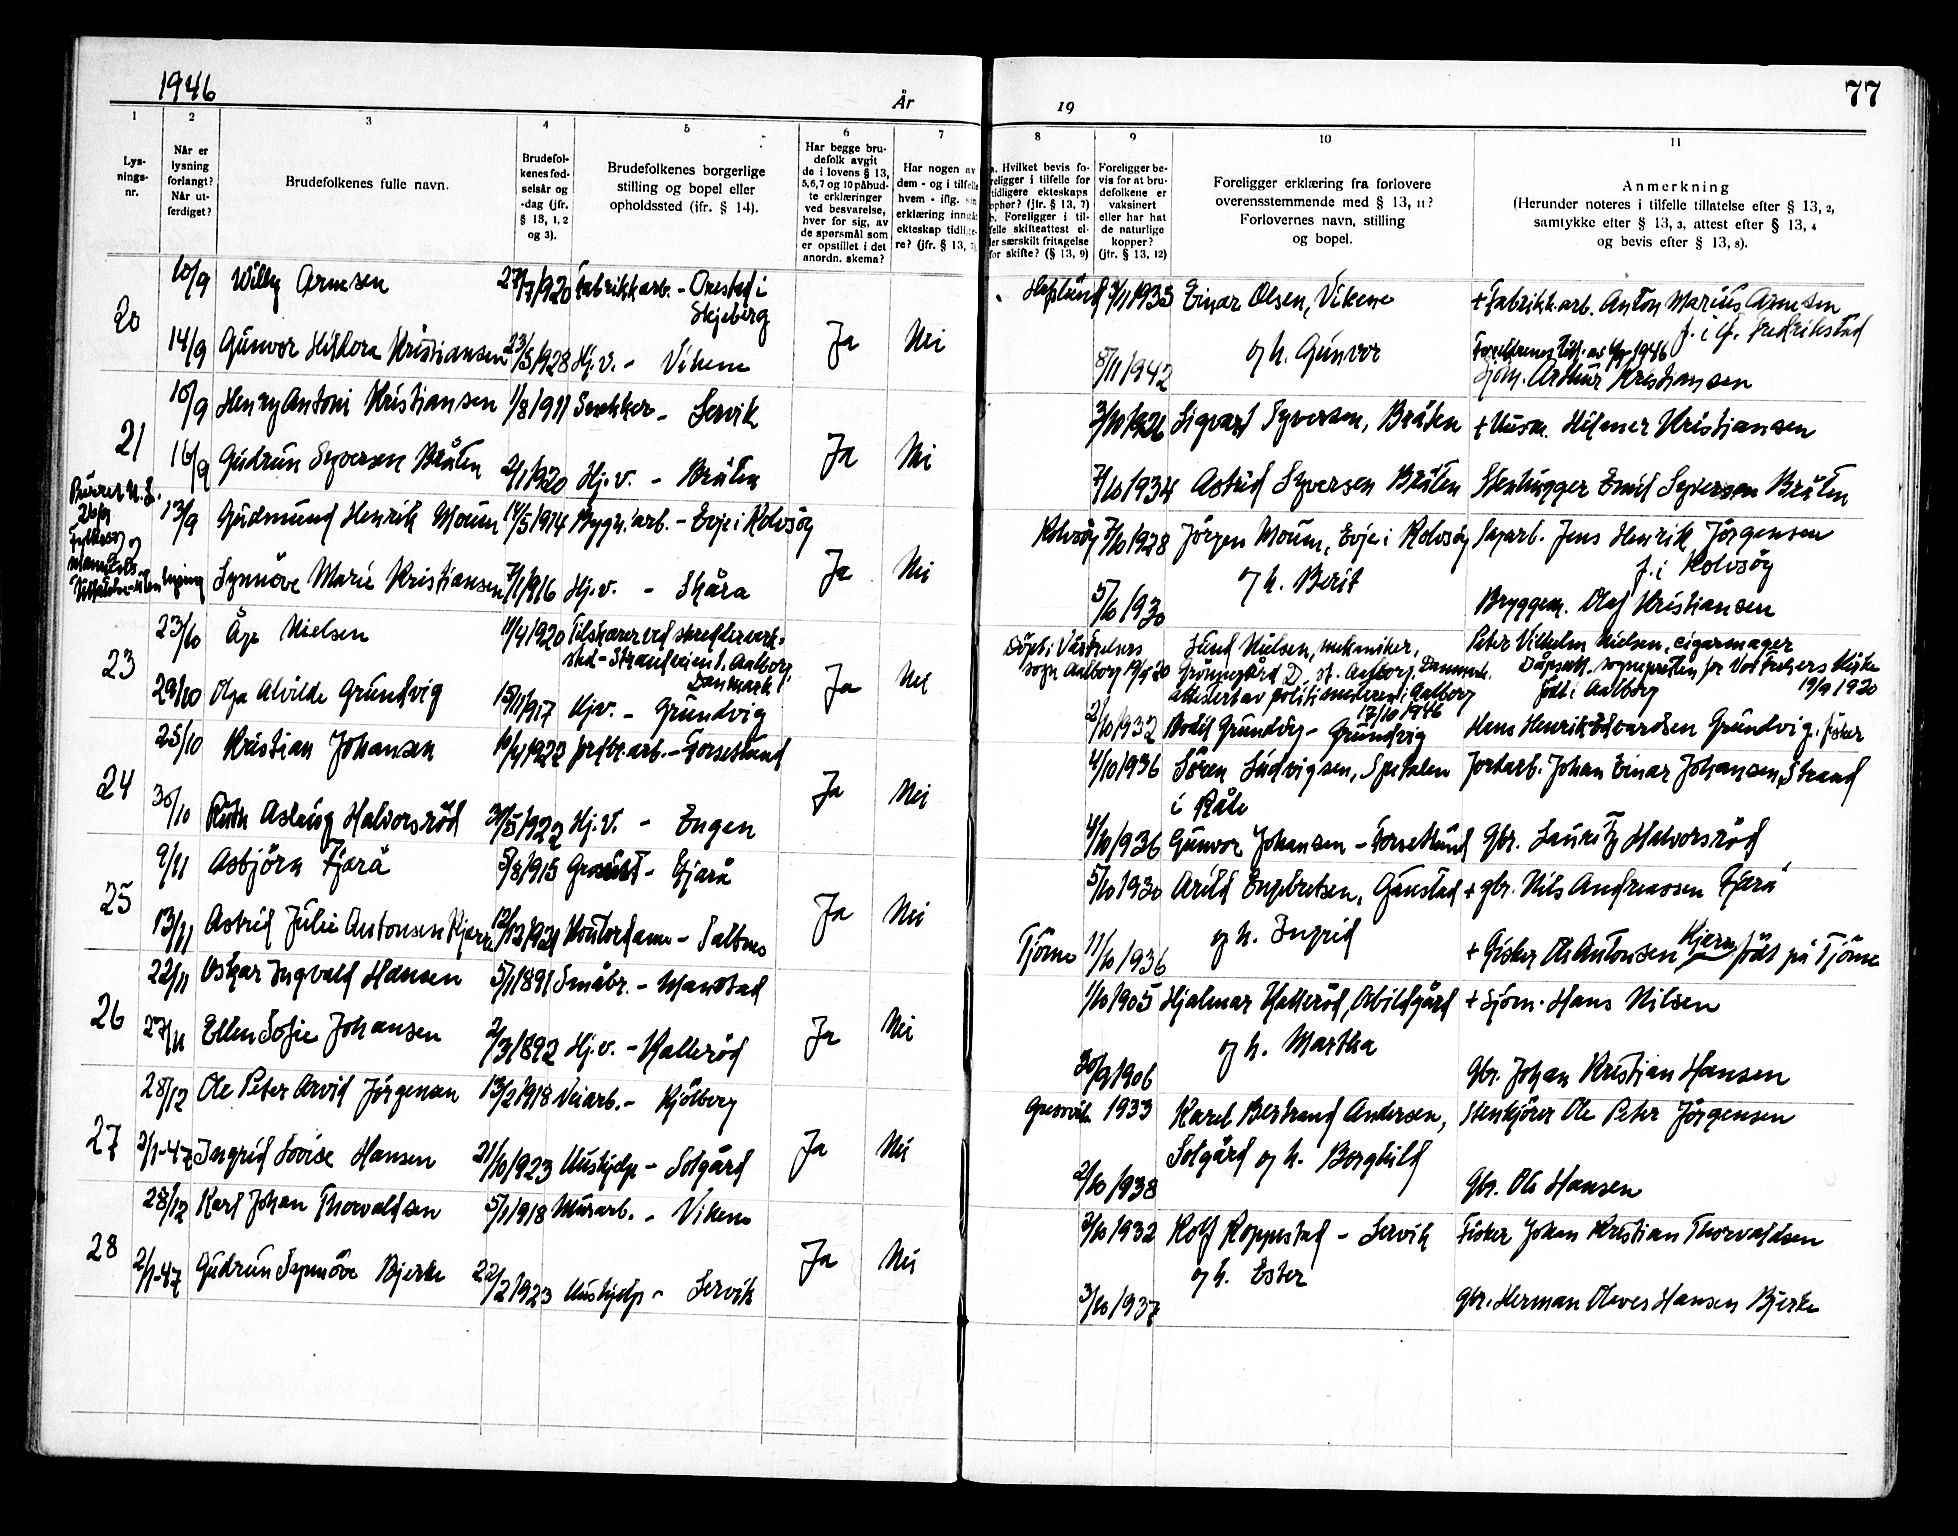 1946
År
19
77
1
2
3
4
5
6
7
8
9
10
11
Lys-
nings-
nr.
Når er
lysning
forlangt?
Når ut-
ferdiget?
Brudefolkenes fulle navn.
Brudefol-
kenes fød-
selsår og
-dag (jfr.
§ 13, 1, 2
og 3).
Brudefolkenes borgerlige
stilling og bopel eller
opholdssted (ifr. § 14).
Har begge bru-
defolk avgit
de i lovens § 13,
5,6,7 og 10 påbud-
te erklæringer
ved besvarelse,
hver for sig, av
de spørsmål som
er opstillet i det
anordn. skema?
Har nogen av
dem - og i tilfelle
hvem - iflg. sin
erklæring inngått
ekteskap tidlige-
re? (jfr. § 13, 7)
a. Hvilket bevis fo-
religger i tilfelle for
tidligere ekteskaps
ophør? (jfr. § 13, 7)
b. Foreligger i til-
felle skifteattest el-
ler særskilt fritagelse
for skifte? (§ 13, 9)
Foreligger be-
vis for at bru-
defolkene er
vaksinert
eller har hat
de naturlige
kopper?
(jfr. § 13, 12)
Foreligger erklæring fra forlovere
overensstemmende med § 13, 11?
Forlovernes navn, stilling
og bopel.
Anmerkning
(Herunder noteres i tilfelle tillatelse efter § 13, 2,
samtykke efter § 13, 3, attest efter § 13, 4
og bevis efter § 13, 8).
20
10/9 Willy Arnesen 27/7 1920 Fabrikkarb. - Orestad i
Skjeberg
3/11 1933 Einar Olsen, Vikene + Fabrikk.arb. Anton Marius Arnesen
f. i Gl. Fredrikstad
14/9 Gunvor Hildora Kristiansen 23/5 1928 Hj.v. - Vikene Ja Nei
8/11 1942 og h. Gunvor
Sjøm. Arthur Kristiansen
21
10/9 Henry Antoni Kristiansen 1/8 1911 Snekker - Servik
3/10 1926 Sigvart Syversen, Bråten + Husm. Hilmer Kristiansen
16/9 Gudrun Syversen Bråten 2/1 1920 Hj.v. - Bråten Ja Nei
7/10 1934 Astrid Syversen Bråten Stenhugger Emil Syversen Bråten
26/9
13/9 Gudmund Henrik Moum 14/5 1914 Bygn.arb. - Evje i Rolvsøy
Rolvsøy 7/10 1928 Jörgen Moum, Evje i Rolvsøy Sagarb. Jens Henrik Jörgensen
f. i Rolvsøy
Synnöve Marie Kristiansen 7/1 1916 Hj.v. - Skåra Ja Nei
5/10 1930 og h. Berit
Bryggem. Olaf Kristiansen
23
23/10 Åge Nielsen 11/4 1920 Tilskærer ved skredderverk-
sted - Strandveien 1. Aalborg,
Danmark
sogn Aalborg 19/9 20
Lund Nielsen, mekaniker,
Danmark.
attestert av politimesteren i Aalborg
17/10 1946
Peter Vilhelm Nielsen, cigarmager
Dåpsatt. sognepresten for Vor Frelsers Kirke
19/9 1920
født i Aalborg
29/10 Olga Alvilde Grundvig 15/11 1917 Hjv. - Grundvig Ja Nei
2/10 1932 Bodil Grundvig - Grundvig Hans Henrik Edvardsen Grundvig. fisker
24
25/10 Kristian Johansen 19/4 1922 jordbr.arb. - Torsetlund
4/10 1936 Sören Ludvigsen, Spetalen Jordarb. Johan Einar Johansen, Strand
i Råde
30/10 Ruth Aslaug Halvorsröd 30/5 1922 Hj.v. - Engen Ja Nei
4/10 1936 Gunvor Johansen - Torsetlund Gbr. Lauritz Halvorsröd
25
9/11 Asbjörn Fjærå 5/8 1915 - Fjærå
5/10 1930 Arild Engebretsen, Gunstad + gbr. Nils Andreassen Fjærå
13/11 Astrid Julie Antonsen Kjærn 12/3 1921 Kontordame - Saltnes Ja Nei
Tjöme 11/10 1936 og h. Ingrid + Fisker Ole Antonsen Kjærn født på Tjöme
26
22/11 Oskar Ingvald Hansen 5/1 1891 Småbr. -
1/10 1905 Hjalmar Hatteröd, Abildgård + Sjöm. Hans Nilsen
27/11 Ellen Sofie Johansen 2/3 1892 Hj.v. - Kalleröd Ja Nei
30/9 1906 og h. Martha Gbr. Johan Kristian Hansen
27
28/12 Ole Peter Arvid Jörgensen 13/2 1918 Veiarb. - Kjölberg
Gressvik 1933 Karel Bertrand Andersen, Stenkjörer Ole Peter Jörgensen
2/1-47 Ingrid Lovise Hansen 21/10 1923 Hushjelp - Solgård Ja Nei
2/10 1938 Solgård og h. Borghild Gbr. Ole Hansen
28
28/12 Karl Johan Thorvaldsen 5/1 1918 Murarb. - Vikene
3/10 1932 Rolf Roppestad - Servik Fisker Johan Kristian Thorvaldsen
2/1-47 Gudrun Synnöve Bjerke 22/2 1923 Hushjelp - Servik Ja Nei
3/10 1937 og h. Ester Gbr. Herman Oliver Hansen Bjerke